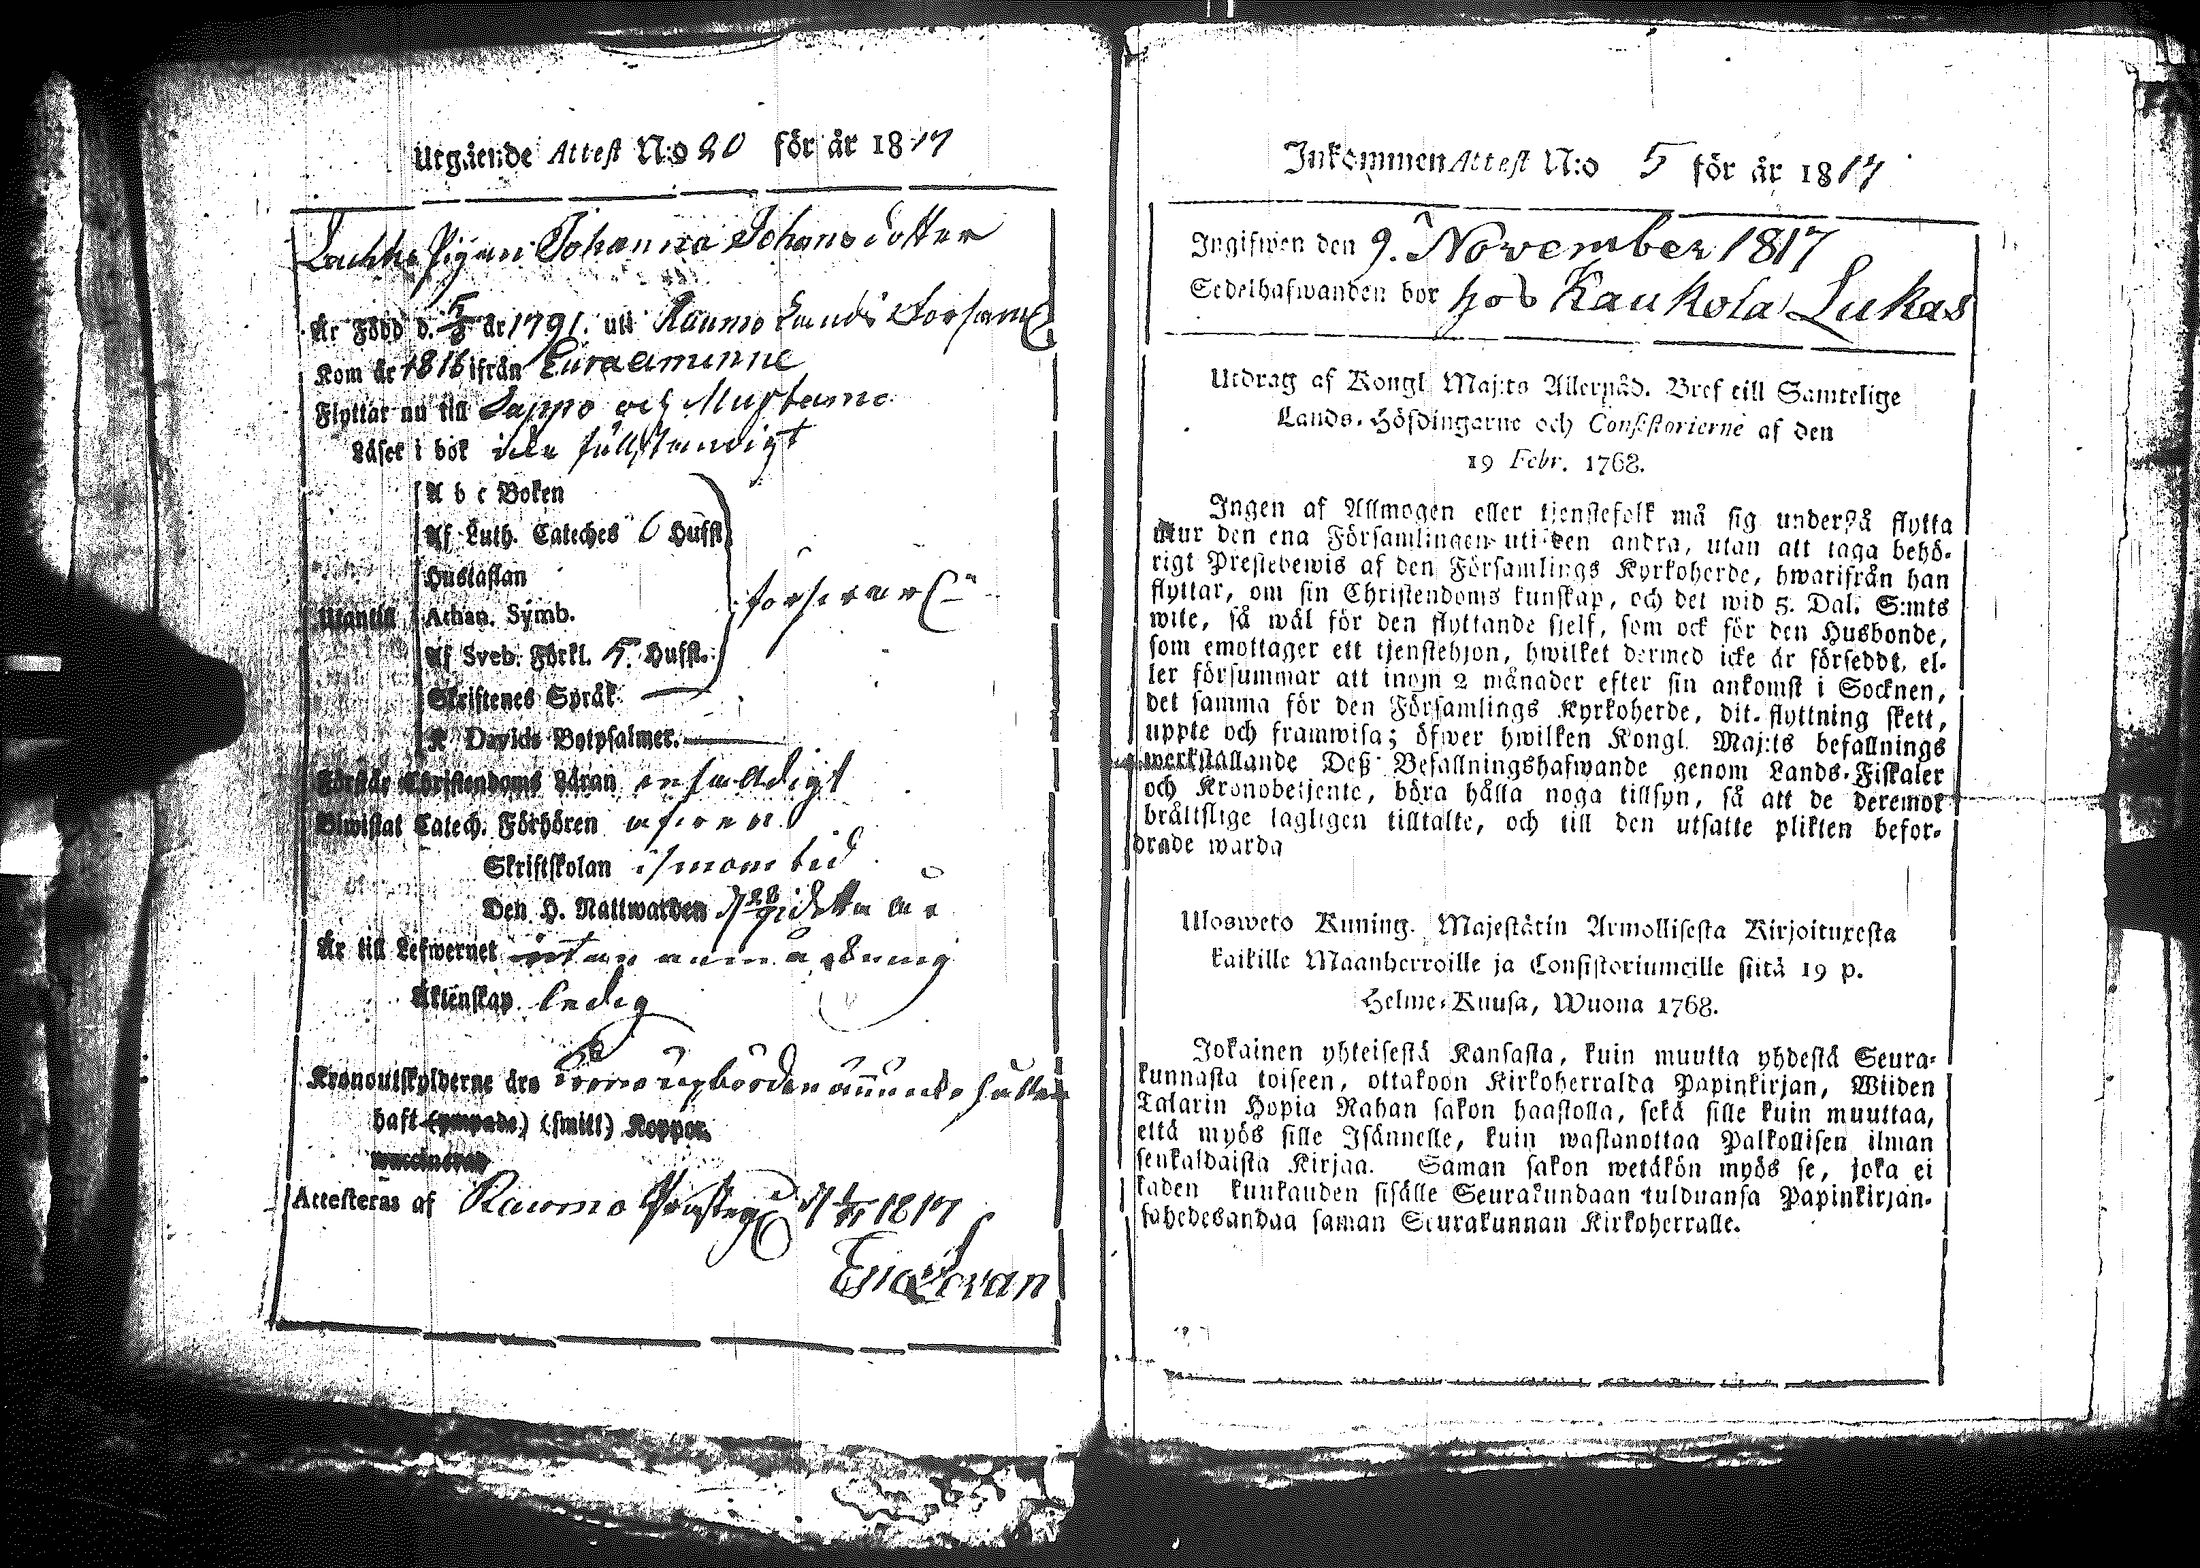 Utgående Attest N:o 20 för år 1817
Pigan Johanna Johansdotter
Är Född d. 5/8 år 1791. uti Raumo Lands Församl
Kom år 1816 ifrån Euraaminne
Flyttar nu till Lappo och Mustamo
Läser i bok icke fullständigt
A b c Boken
Af Luth. Cateches 6 Hufst
Hustaflan
Utantill Athan. Symb.
Af Sveb. Förkl. 5. Hufst.
Skriftenes Språk
K Davids Botpsalmer.
Förstår Christendoms Läran enfaldigt
Biwistat Catech. Förhören
Skriftskolan i sinom tid
Den H. Nattwarden d 28/9 i detta år
Är till Lefwernet utan anmärkning
Äktenskap ledig
Kronoutskylderne äro
haft (ympade) (smitt) Koppor.
vaccinerad
Attesteras af Raumo Prästeg d 1/11 1817
Inkommen Attest N:o 5 för år 1817
Ingifwen den 9. November 1817
Sedelhafwanden bor hos Kaukola Lukas
Utdrag af Kongl. Maj:ts Allernåd. Bref till Samtelige
Lands-Höfdingarne och Consistorierne af den
19 Febr. 1768.
Ingen af Allmogen eller tjenstefolk må sig understå flytta
utur den ena Församlingen uti den andra, utan att taga behö-
rigt Prestebewis af den Församlings Kyrkoherde, hwarifrån han
flyttar, om sin Christendoms kunskap, och det wid 5. Dal. S:mts
wite, så wäl för den flyttande sjelf, som ock för den Husbonde,
som emottager ett tjenstehjon, hwilket dermed icke är försedt, el-
ler försummar att inom 2 månader efter sin ankomst i Socknen,
det samma för den Församlings Kyrkoherde, dit flyttning skett,
uppte och framwisa; öfwer hwilken Kongl. Maj:ts befallnings
werkställande Deß Befallningshafwande genom Lands-Fiskaler
och Kronobetjente, böra hålla noga tillsyn, så att de deremot
brålislige lagligen tilltalte, och till den utsatte plikten befor-
drade warda
Ulosweto Kuning. Majestätin Armollisesta Kirjoituxesta
kaikille Maanherroille ja Consistoriumeille siitä 19 p.
Helme-Kuusa, Wuona 1768.
Jokainen yhteisestä Kansasta, kuin muutta yhdestä Seura-
kunnasta toiseen, ottakoon Kirkoherralda Papinkirjan, Wiiden
Talarin Hopia Rahan sakon haastolla, sekä sille kuin muuttaa,
että myös sille Isännelle, kuin wastanottaa Palkollisen ilman
senkaldaista Kirjaa. Saman sakon wetäkön myös se, joka ei
kaden kuukauden sisälle Seurakundaan tulduansa Papinkirjan-
sahedesandaa saman Seurakunnan Kirkoherralle.